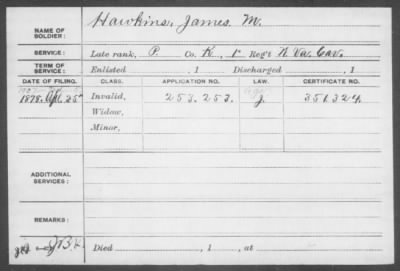 NAME OF SOLDIER: Hawkins, James M.
SERVICE: Late rank, P. Co. K, 1st Reg't W. Va. Cav.
TERM OF SERVICE: Enlisted , 1 Discharged , 1
DATE OF FILING. CLASS. APPLICATION NO. LAW. CERTIFICATE NO.
1878. Apl. 25 Invalid, 253.253. J. 351.324.
Widow,
Minor,
ADDITIONAL SERVICES:
REMARKS:
Died , 1 , at